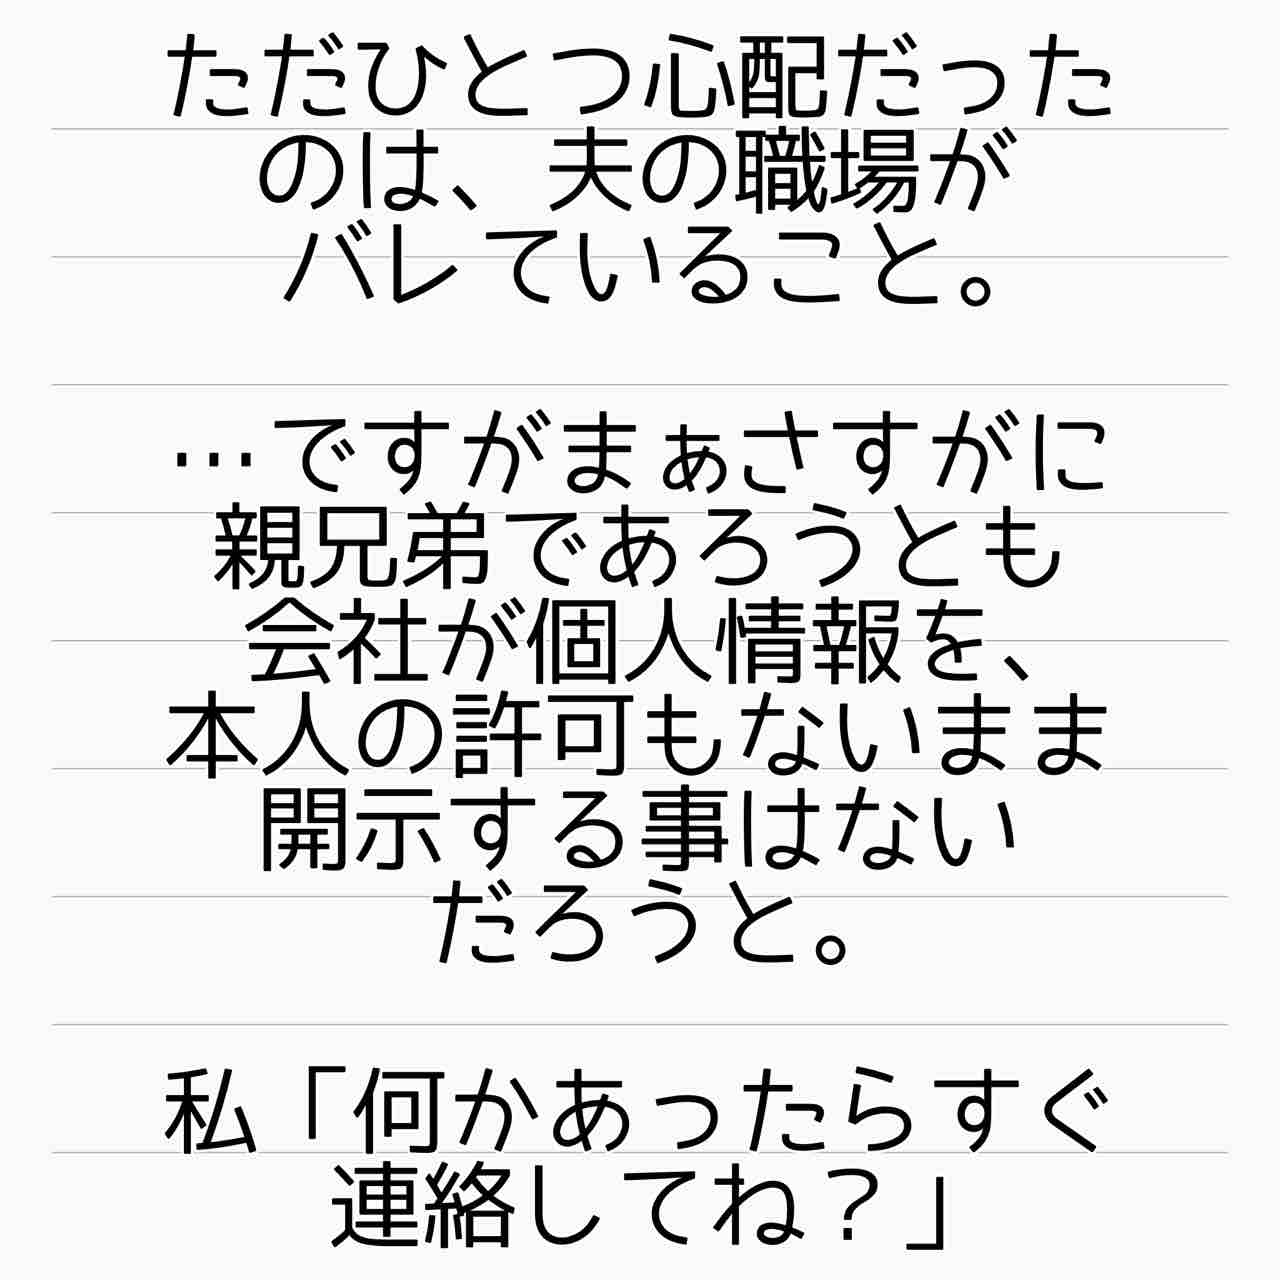 ただひとつ心配だった
のは、夫の職場が
バレていること。
…ですがまぁさすがに
親兄弟であろうとも
会社が個人情報を、
本人の許可もないまま
開示する事はない
だろうと。
私「何かあったらすぐ
連絡してね？」